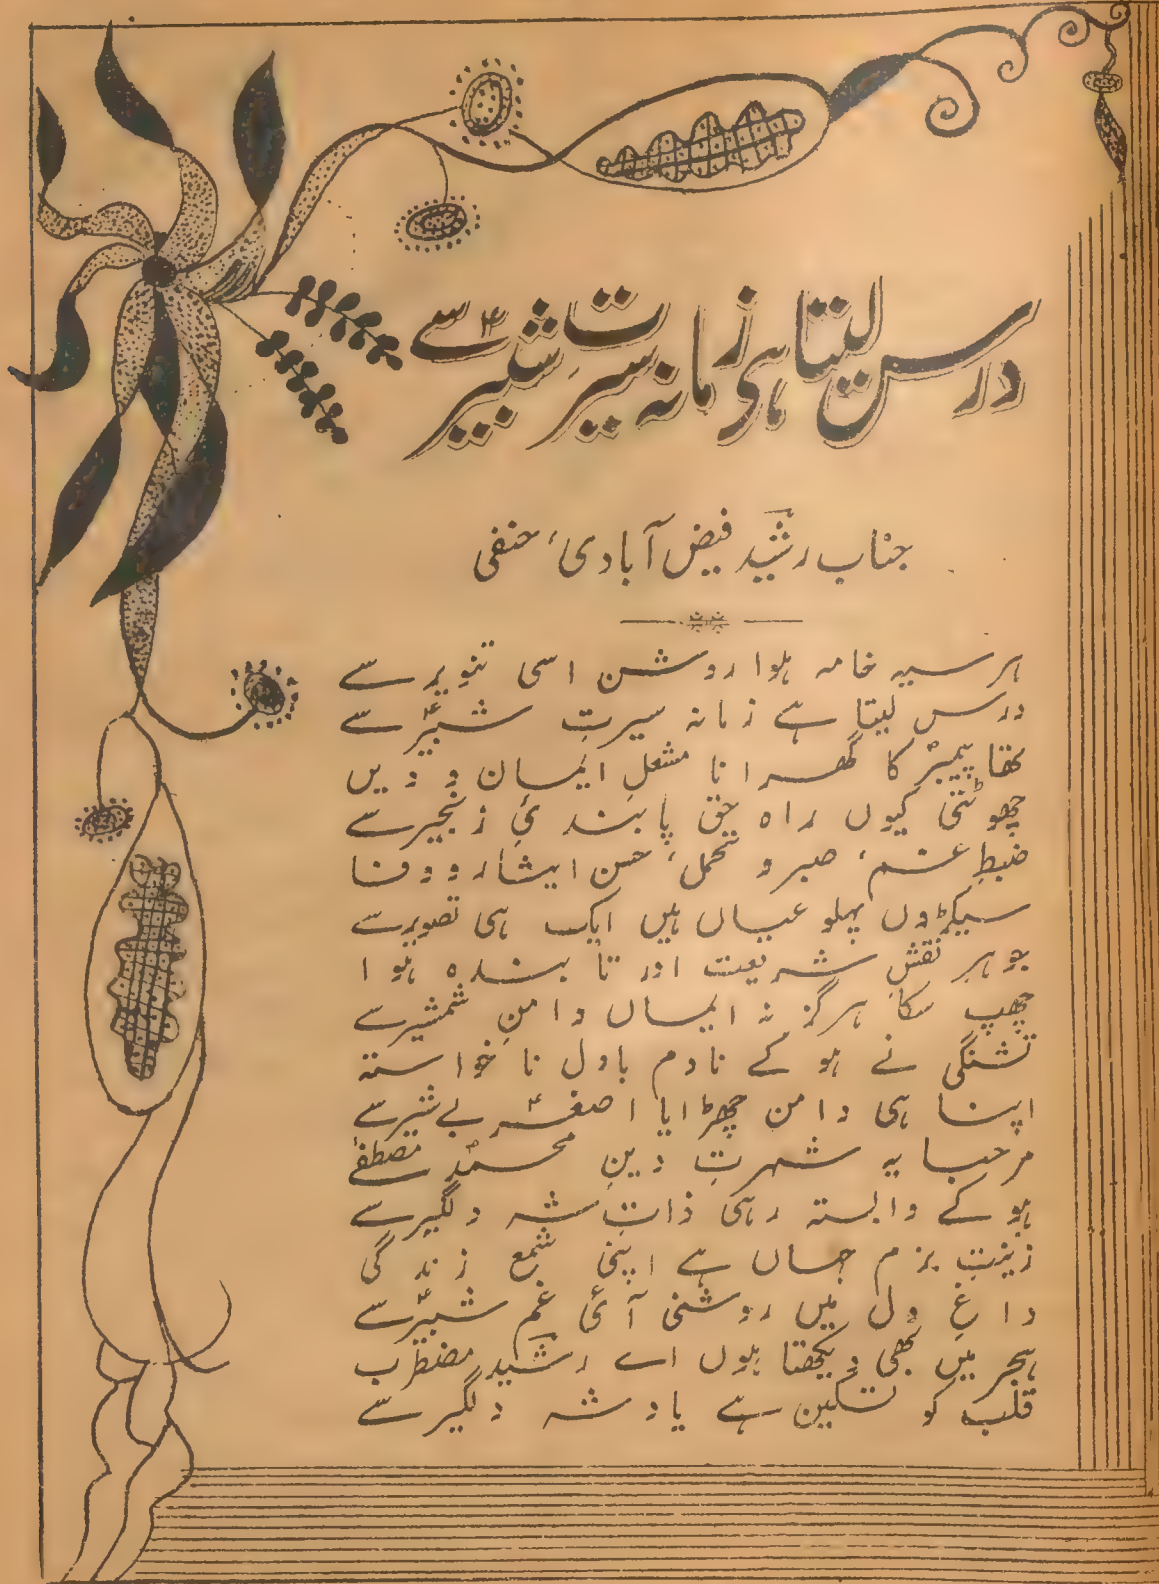 درس لیتا ہی زمانہ سیرتِ شبیرؑ سے
جناب رشیدؔ فیض آبادی، حنفی
ہر سیہ خامہ ہوا روشن اسی تنویر سے
درس لیتا ہے زمانہ سیرتِ شبیرؑ سے
تھا پیمبرؐ کا گھرانا مشعلِ ایمان و دیں
چھوٹتی کیوں راہ حق پابندئ زنجیر سے
ضبطِ غم، صبر و تحمل، حسن ایثار و وفا
سیکڑوں پہلو عیاں ہیں ایک ہی تصویر سے
جوہر نقشِ شریعت اور تابندہ ہوا
چھپ سکا ہرگز نہ ایماں دامنِ شمشیر سے
تشنگی نے ہو کے نادم بادل ناخواستہ
اپنا ہی دامن چھڑایا اصغرؑ بے شیر سے
مرحبا یہ شہرتِ دینِ محمدؐ مصطفےٰ
ہو کے وابستہ رہی ذاتِ شہ دلگیر سے
زینتِ بزم جہاں ہے اپنی شمع زندگی
داغِ دل میں روشنی آئی غم شبیرؑ سے
ہجر میں بھی دیکھتا ہوں اے رشیدؔ مضطرب
قلب کو تسکین ہے یاد شہ دلگیر سے